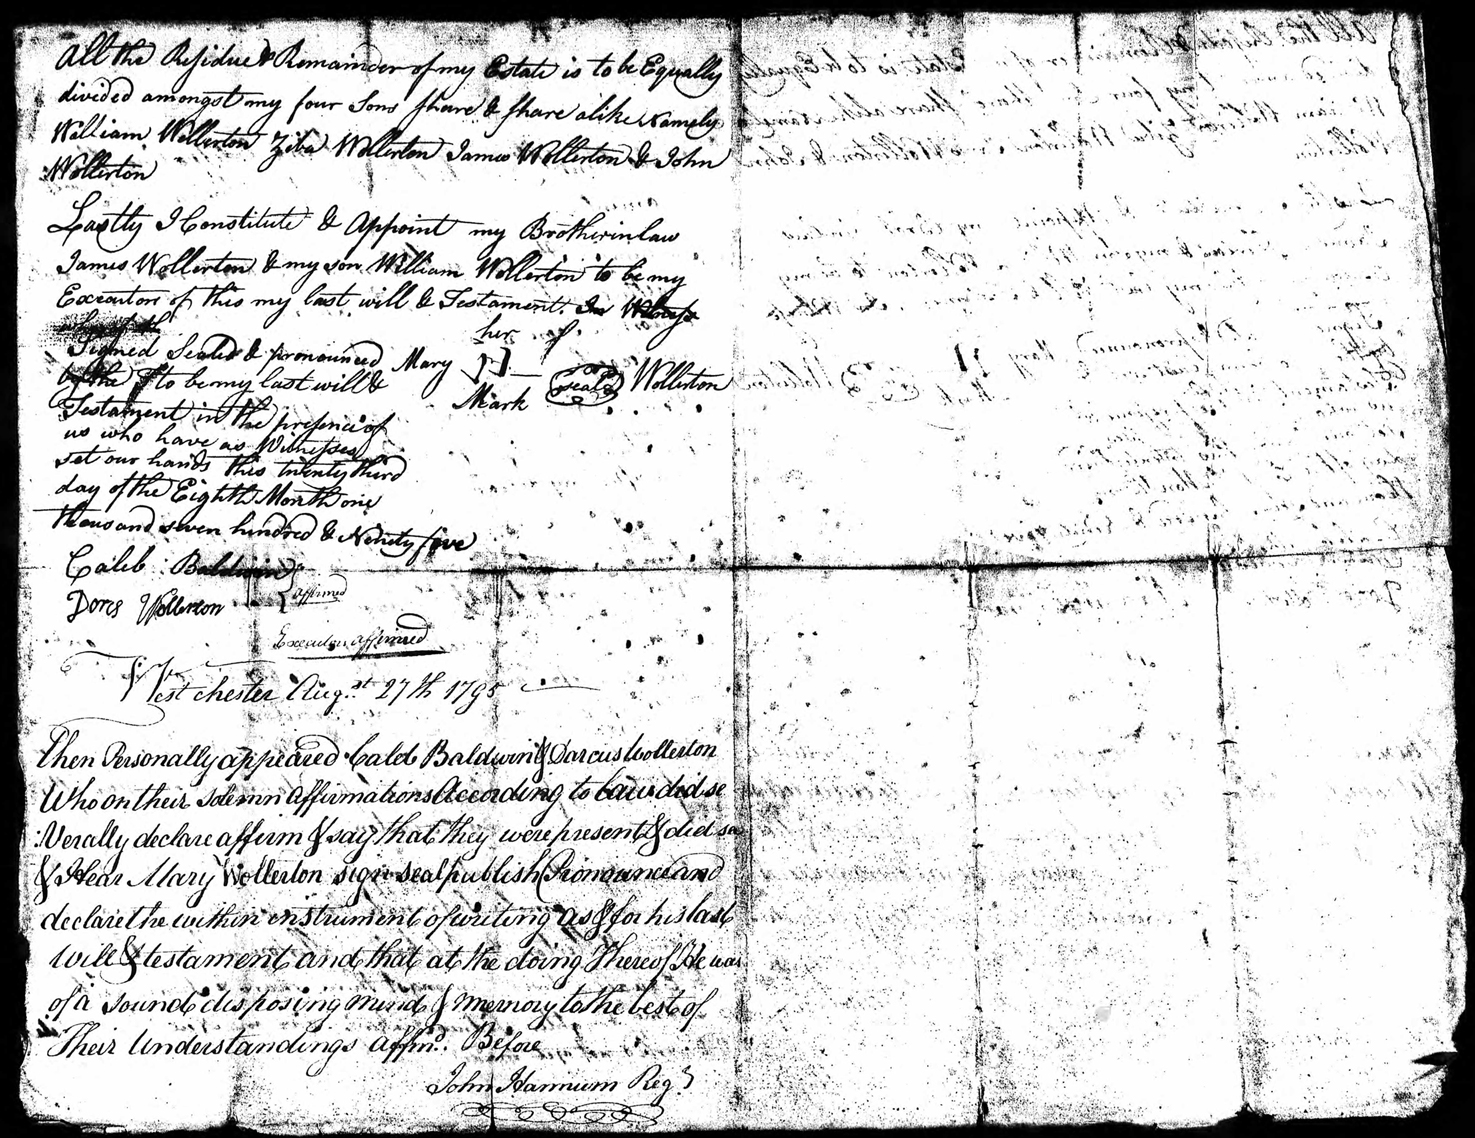 All the Residue & Remainder of my Estate is to be Equally
divided amongst my four Sons share & share alike Namely
William Wollerton Ziba Wollerton James Wollerton & John
Wollerton
Lastly I Constitute & Appoint my Brotherinlaw
James Wollerton & my son William Wollerton to be my
Executors of this my last will & Testament. In Witness
Signed Sealed & pronounced
by the to be my last will &
Testament in the presence of
us who have as Witnesses
set our hands this twenty third
day of the Eighth Month one
thousand seven hundred & Ninety five
her
Mary Wollerton
Mark
Seal
Caleb Baldwin
Dorcs Wollerton
affirmed
Executors affirmed
West chester Augst 27th 1795
Then Personally appeared Caleb Baldwin & Darcus Wollerton
Who on their solemn Affirmations According to Law did se
Verally declare affirm & say that they were present & did se
& Hear Mary Wollerton sign seal publish Pronounce and
declare the within instrument of writing as & for his last
will & testament and that at the doing Thereof He was
of a sound disposing mind & memory to the best of
Their Understandings affmd. Before
John Hannum Regr